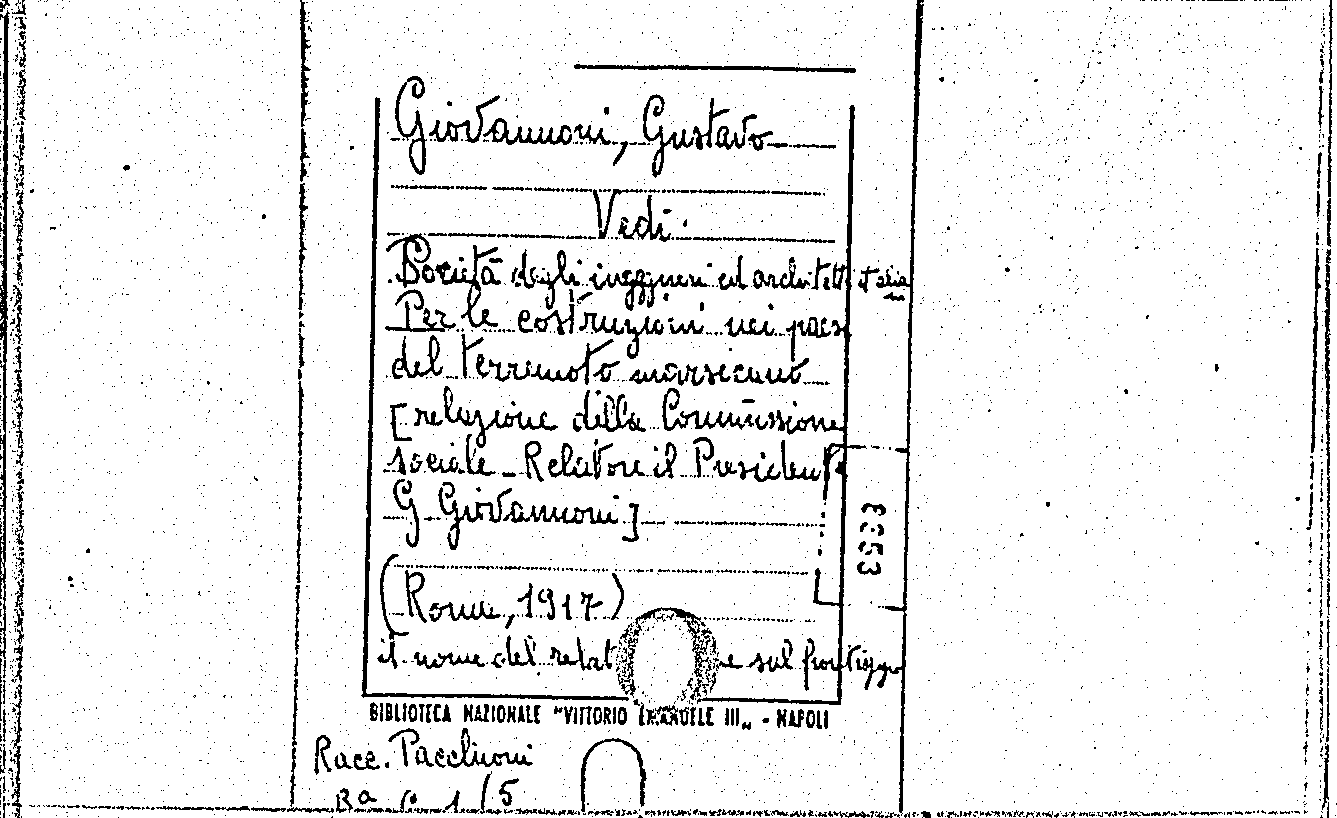 Giovannoni, Gustavo
Vedi.
Società degli ingegneri ed architetti italiani
Per le costruzioni nei paesi
del terremoto marsicano
[relazione della Commissione
sociale - Relatore il Presidente
G Giovannoni]
(Roma, 1917)
il nome del relat e sul frontisp
BIBLIOTECA NAZIONALE "VITTORIO EMANUELE III„ - NAPOLI
Racc. Pacchioni
Ba 1/5